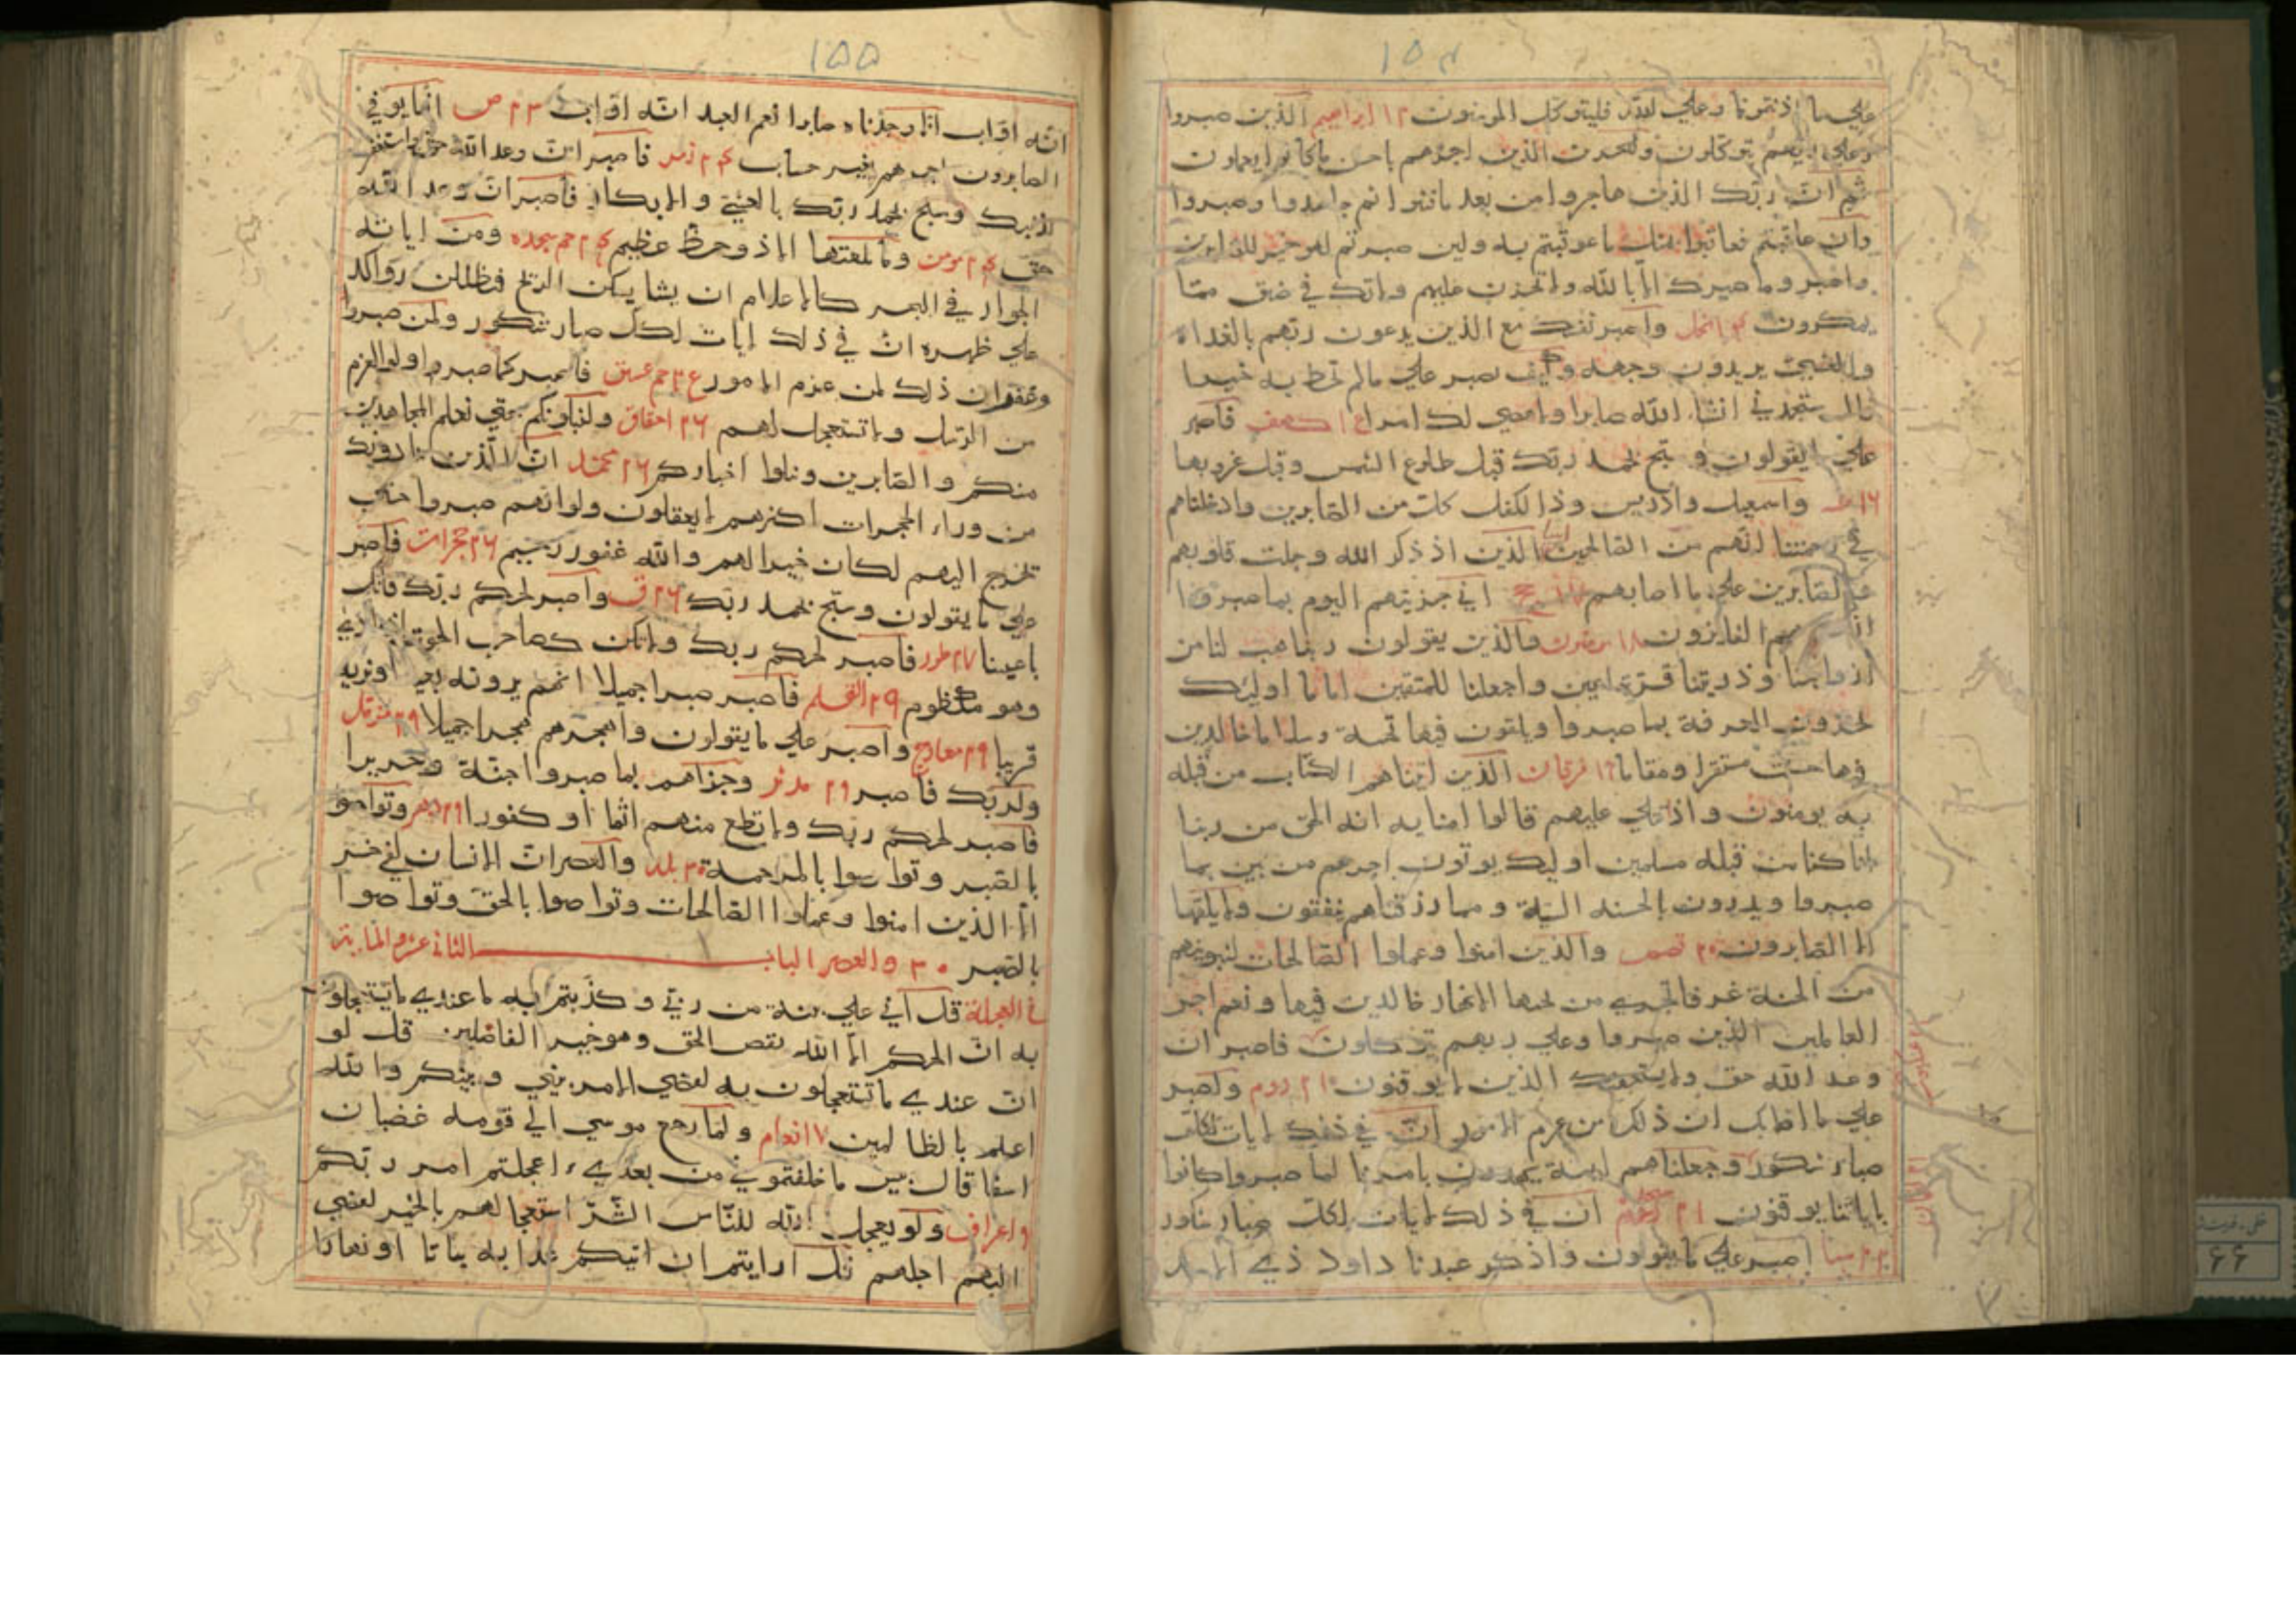 ۱۵۴
علي ما اذيتمونا وعلي الله فليتوكل المومنون ۱۲ ابراهيم الذين صبروا
وعلي ربهم يتوكلون ولنجزين الذين اجرهم باحسن ماكانوا يعملون
ثم ان ربك الذين هاجروا من بعد مافتنوا ثم جاهدوا وصبروا
وان عاقبتم فعاقبوا بمثل ماعوقبتم به ولين صبرتم لهو خير للصابرين
واصبر وما صبرك الا بالله ولاتحزن عليهم ولاتك في ضيق مما
يمكرون النحل واصبر نفسك مع الذين يدعون ربهم بالغداة
والعشي يريدون وجهه وكيف تصبر علي مالم تحط به خبرا
قال ستجدني انشاء الله صابرا ولااعصي لك امرا كهف فاصبر
علي مايقولون وسبح بحمد ربك قبل طلوع الشمس وقبل غروبها
۱۶ طه واسمعيل وادريس وذا الكفل كل من الصابرين وادخلناهم
في رحمتنا انهم من الصالحين الذين اذ ذكر الله وجلت قلوبهم
والصابرين علي ما اصابهم حج اني جزيتهم اليوم بما صبروا
انهم هم الفايزون والذين يقولون ربنا هب لنا من
ازواجنا وذريتنا قرة اعين واجعلنا للمتقين اماما اوليك
يجزون الغرفة بما صبروا ويلقون فيها تحية وسلاما خالدين
فيها حسنت مستقرا ومقاما ۱۹ فرقان الذين اتيناهم الكتاب من قبله
به يومنون واذ يتلي عليهم قالوا امنا به انه الحق من ربنا
انا كنا من قبله مسلمين اوليك يوتون اجرهم مرتين بما
صبروا ويدرون بالحسنه السية ومما رزقناهم ينفقون ولايلقيها
الا الصابرون ۲۰ قصص والذين امنوا وعملوا الصالحات لنبوينهم
من الجنة غرفا تجري من تحتها الانهار خالدين فيها ونعم اجر
العاملين الذين صبروا وعلي ربهم يتوكلون فاصبر ان
وعد الله حق ولايستخفنك الذين لايوقنون ۲۱ روم واصبر
علي ما اصابك ان ذلك من عزم الامور ان في ذلك لايات لكل
صبار شكور وجعلناهم ايمة يهدون بامرنا لما صبروا وكانوا
باياتنا يوقنون ۲۱ سجده ان في ذلك لايات لكل صبار شكور
۲۲ سبا اصبر علي مايقولون واذكر عبدنا داود ذي الايد
۱۵۵
انه اواب انا وجدناه صابرا نعم العبد انه اواب ۲۳ ص انما يوفي
الصابرون اجرهم بغير حساب ۲۳ زمر فاصبر ان وعد الله حق واستغفر
لذنبك وسبح بحمد ربك بالعشي والابكار فاصبر ان وعد الله
حق ۲۴ مومن ومايلقيها الا ذو حظ عظيم ۲۴ حم سجده ومن اياته
الجوار في البحر كالاعلام ان يشا يسكن الريح فيظللن رواكد
علي ظهره ان في ذلك لايات لكل صبار شكور ولمن صبروا
وغفر ان ذلك لمن عزم الامور حم عسق فاصبر كما صبر اولوالعزم
من الرسل ولاتستعجل لهم ۲۶ احقاق ولنبلونكم حتي نعلم المجاهدين
منكم والصابرين ونبلوا اخباركم ۲۶ محمد ان الذين ينادونك
من وراء الحجرات اكثرهم لايعقلون ولو انهم صبروا حتي
تخرج اليهم لكان خيرا لهم والله غفور رحيم ۲۶ حجرات فاصبر
علي مايقولون وسبح بحمد ربك ۲۶ ق واصبر لحكم ربك فانك
باعيننا ۲۷ طور فاصبر لحكم ربك ولاتكن كصاحب الحوت اذ نادي
وهو مكظوم ۲۹ القلم فاصبر صبرا جميلا انهم يرونه بعيدا ونريه
قريبا ۲۹ معارج واصبر علي مايقولون واهجرهم هجرا جميلا ۲۹ مزمل
ولربك فاصبر ۲۹ مدثر وجزاهم بما صبروا جنة وحريرا
فاصبر لحكم ربك ولاتطع منهم اثما او كفورا ۲۹ دهر وتواصو
بالصبر وتواصوا بالمرحمة ۳۰ بلد والعصر ان الانسان لفي خسر
الا الذين امنوا وعملوا الصالحات وتواصوا بالحق وتواصوا
بالصبر ۳۰ والعصر الباب الثاني عشر والمايتن
في العجلة قل اني علي بينة من ربي وكذبتم به ماعندي ماتستعجلون
به ان الحكم الا الله يقص الحق وهو خير الفاصلين قل لو
ان عندي ماتستعجلون به لقضي الامر بيني وبينكم والله
اعلم بالظالمين ۷ انعام ولما رجع موسي الي قومه غضبان
اسفا قال بيس ماخلفتموني من بعدي اعجلتم امر ربكم
۹ اعراف ولو يعجل الله للناس الشر استعجالهم بالخير لقضي
اليهم اجلهم قل ارايتم ان اتيكم عذابه بياتا او نهارا
۶۶